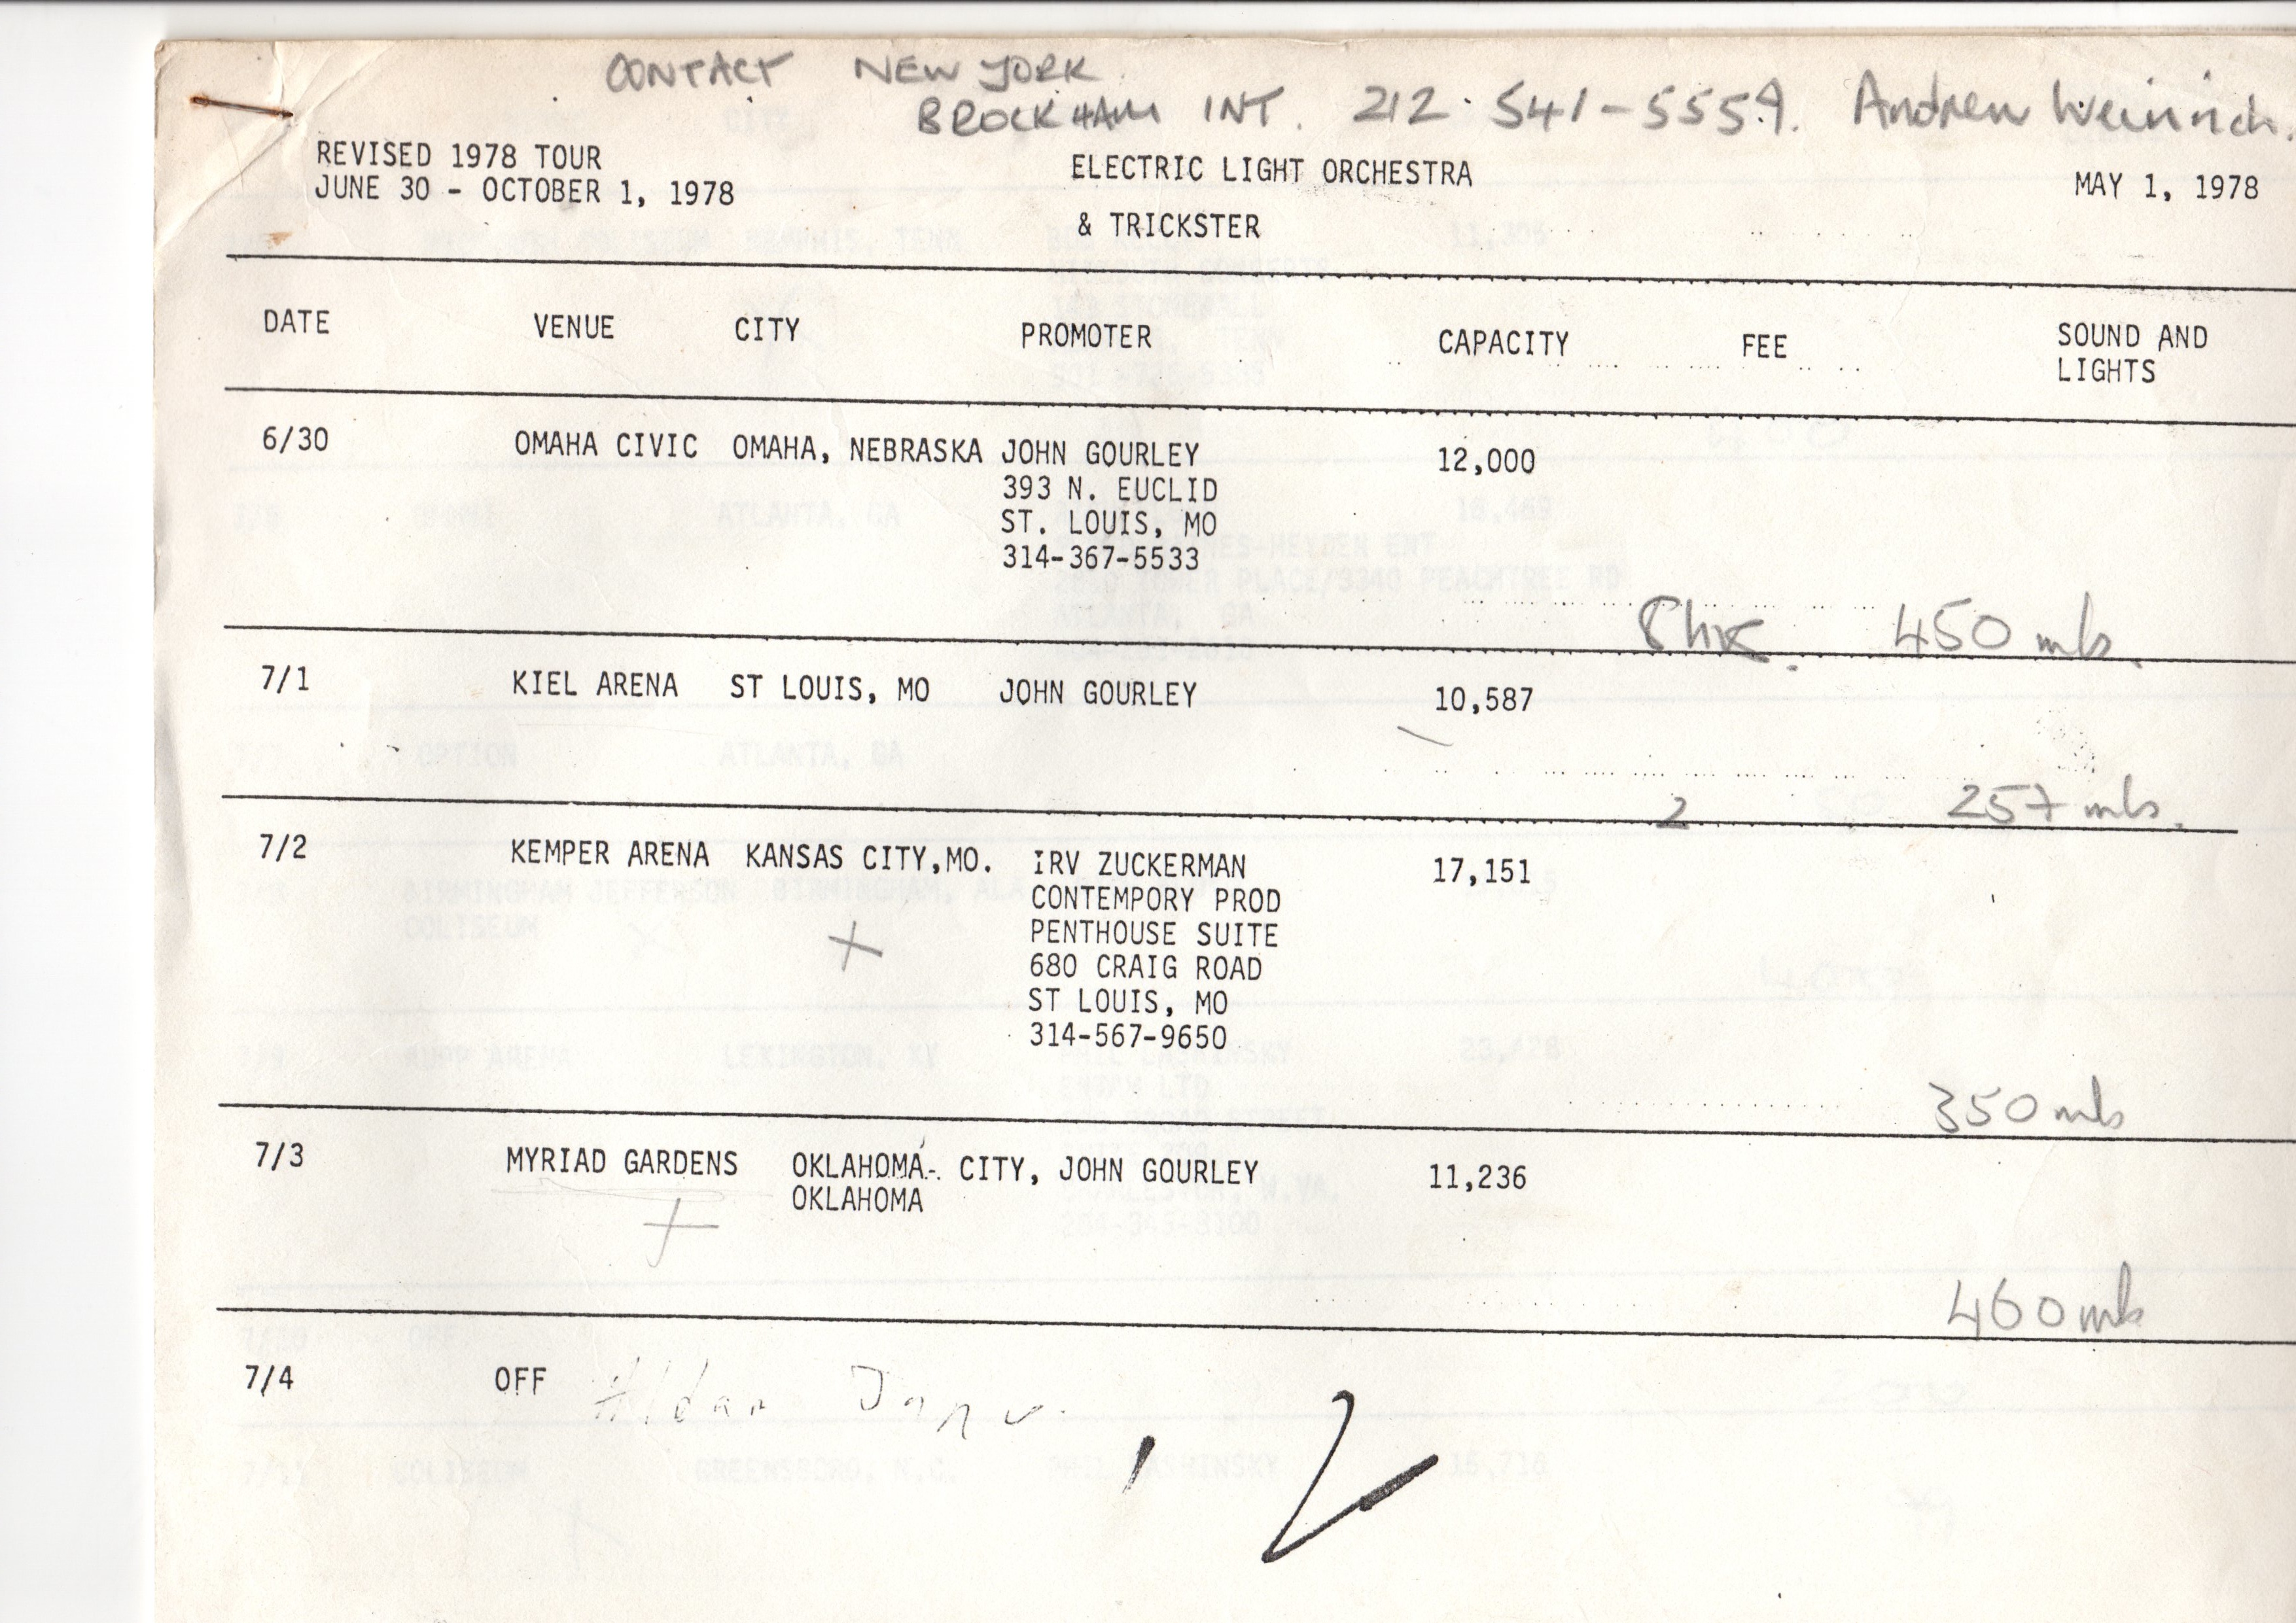 CONTACT NEW YORK
BROCKHAM INT. 212. 541-5559. Andrew Weinrich.
REVISED 1978 TOUR
JUNE 30 - OCTOBER 1, 1978
ELECTRIC LIGHT ORCHESTRA
& TRICKSTER
MAY 1, 1978
DATE VENUE CITY PROMOTER CAPACITY FEE SOUND AND
LIGHTS
6/30 OMAHA CIVIC OMAHA, NEBRASKA JOHN GOURLEY 12,000
393 N. EUCLID
ST. LOUIS, MO
314-367-5533
450 mls.
7/1 KIEL ARENA ST LOUIS, MO JOHN GOURLEY 10,587
2 257 mls.
7/2 KEMPER ARENA KANSAS CITY,MO. IRV ZUCKERMAN 17,151
CONTEMPORY PROD
PENTHOUSE SUITE
680 CRAIG ROAD
ST LOUIS, MO
314-567-9650
350 mls
7/3 MYRIAD GARDENS OKLAHOMA- CITY, JOHN GOURLEY 11,236
OKLAHOMA
460 mls
7/4 OFF